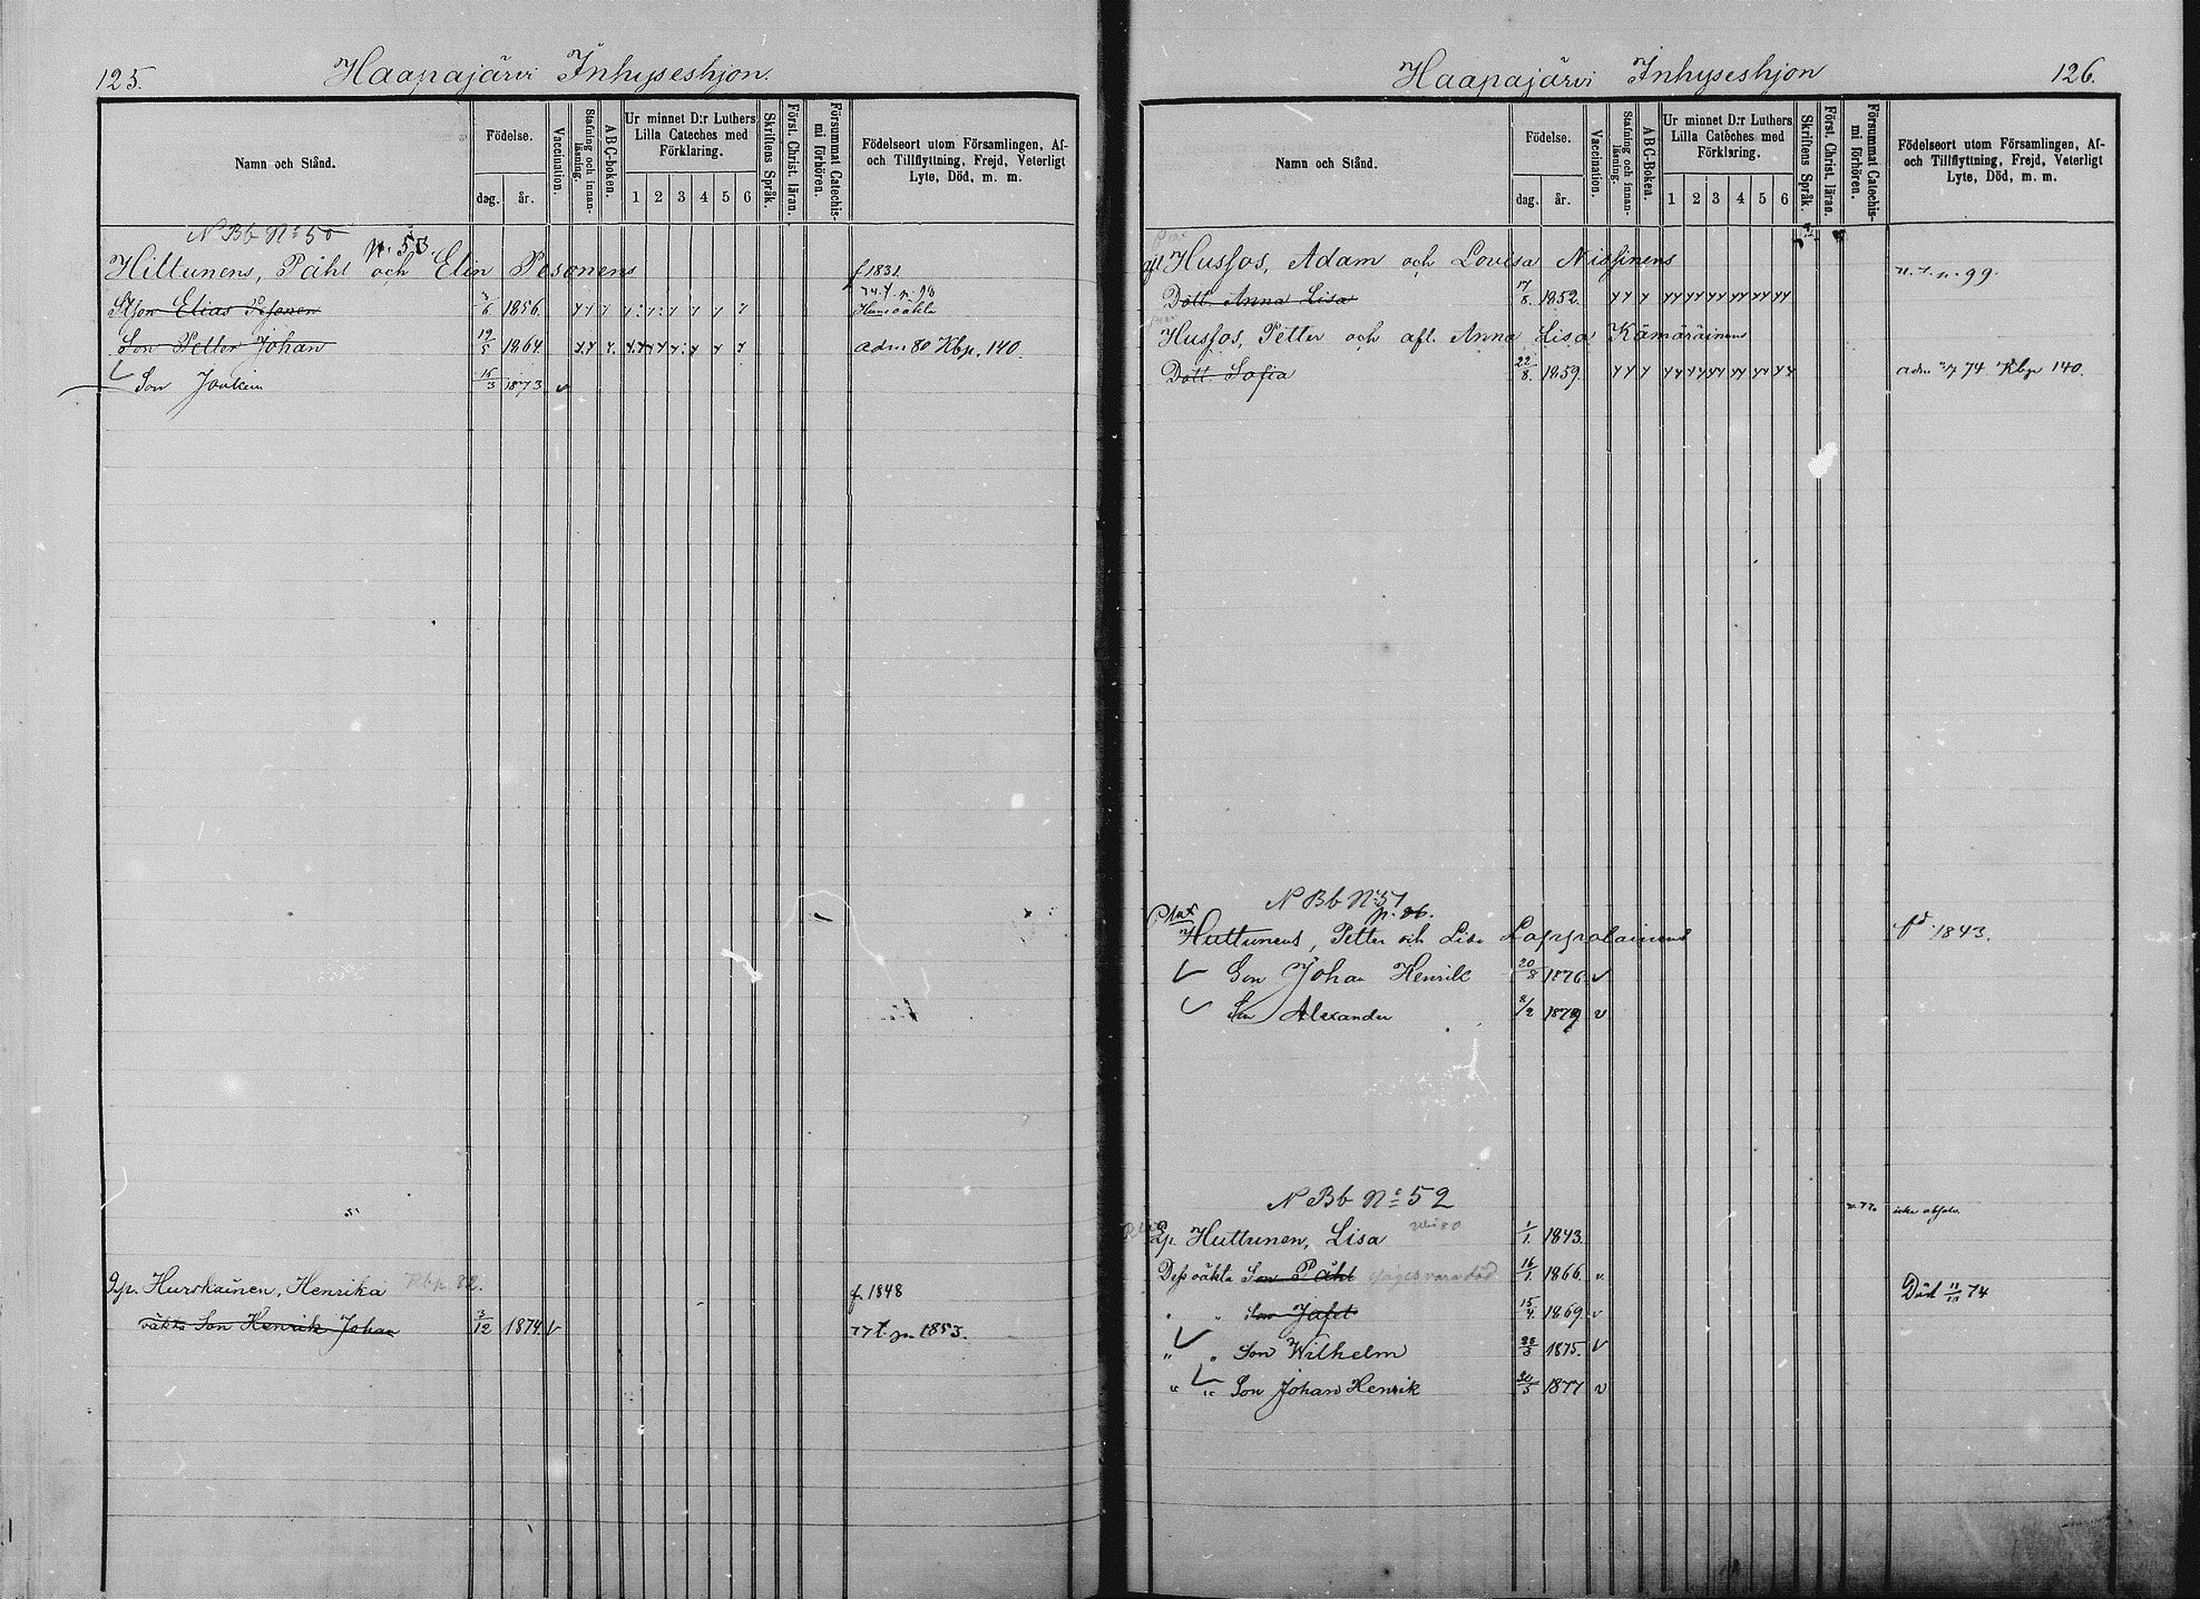 125.
Haapajärvi Inhyseshjon.
Namn och Stånd.
Födelse.
dag. år.
Vaccination.
Stafning och innanläsning.
ABC-boken.
Ur minnet D:r Luthers Lilla Cateches med Förklaring.
1 2 3 4 5 6
Skriftens Språk.
Först. Christ. läran.
Försummat Catechismi förhören.
Födelseort utom Församlingen, Af- och Tillflyttning, Frejd, Veterligt Lyte, Död, m. m.
N Bb No 50
p. 53.
Hiltunens, Påhl och Elin Pesonens f 1831
Stson Elias Pesonen 6 1856.
Son Petter Johan 19/5 1864. adm 80 Kbp. 140.
Son Joakim 15/3 1873 v
Qp. Hurskainen, Henrika Kbp. 82. f. 1848
oäkta Son Henrik Johan 3/12 1874. v 77 t. p. 1853.
126.
Haapajärvi Inhyseshjon
Namn och Stånd.
Födelse.
dag. år.
Vaccination.
Stafning och innanläsning.
ABC-Boken.
Ur minnet D:r Luthers Lilla Cateches med Förklaring.
1 2 3 4 5 6
Skriftens Språk.
Först. Christ. läran.
Försummat Catechismi förhören.
Födelseort utom Församlingen, Af- och Tillflyttning, Frejd, Veterligt Lyte, Död, m. m.
afl Hussos, Adam och Lovisa Nissinens
Dott. Anna Lisa 17/8. 1852. n. t. p. 99.
Hussos, Petter och afl. Anna Lisa Kämäräinens
Dott. Sofia 22/8. 1859. adm 74 Kbp 140.
N Bb No 51
p. 86.
Huttunens, Petter och Lisa Lappalainens fd 1843.
Son Johan Henrik 20/8 1876 v
Son Alexander 8/2 1879 v
N Bb No 52
Qp. Huttunen, Lisa 1/1. 1843.
Dess oäkta Son Påhl 16/1. 1866. Död 11/10 74
" " Son Jafet 15/4. 1869. v
" " Son Wilhelm 28/3 1875. v
" " Son Johan Henrik 20/5 1877 v